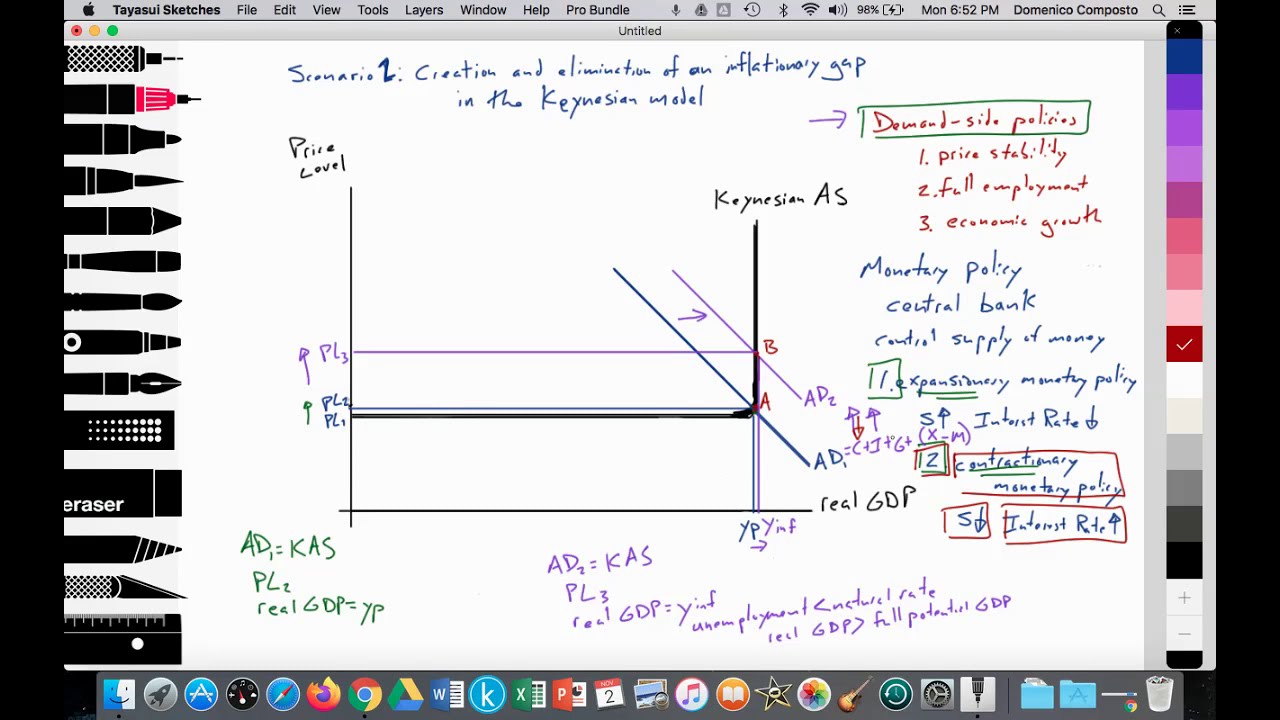 Tayasui Sketches File Edit View Tools Layers Window Help Pro Bundle 98% Mon 6:52 PM Domenico Composto
Untitled
Scenario 2: Creation and elimination of an inflationary gap
in the Keynesian model
Demand-side policies
1. price stability
2. full employment
3. economic growth
Price
Level
Keynesian AS
Monetary policy
central bank
control supply of money
1. expansionary monetary policy
S↑ Interest Rate ↓
2. contractionary
monetary policy
S↓ Interest Rate ↑
PL3
PL2
PL1
B
A
AD2
AD1 = C+I+G+(X-M)
real GDP
Yp Yinf
AD1 = KAS
PL2
real GDP = Yp
AD2 = KAS
PL3
real GDP = Yinf
unemployment < natural rate
real GDP > full potential GDP
eraser
NOV
2